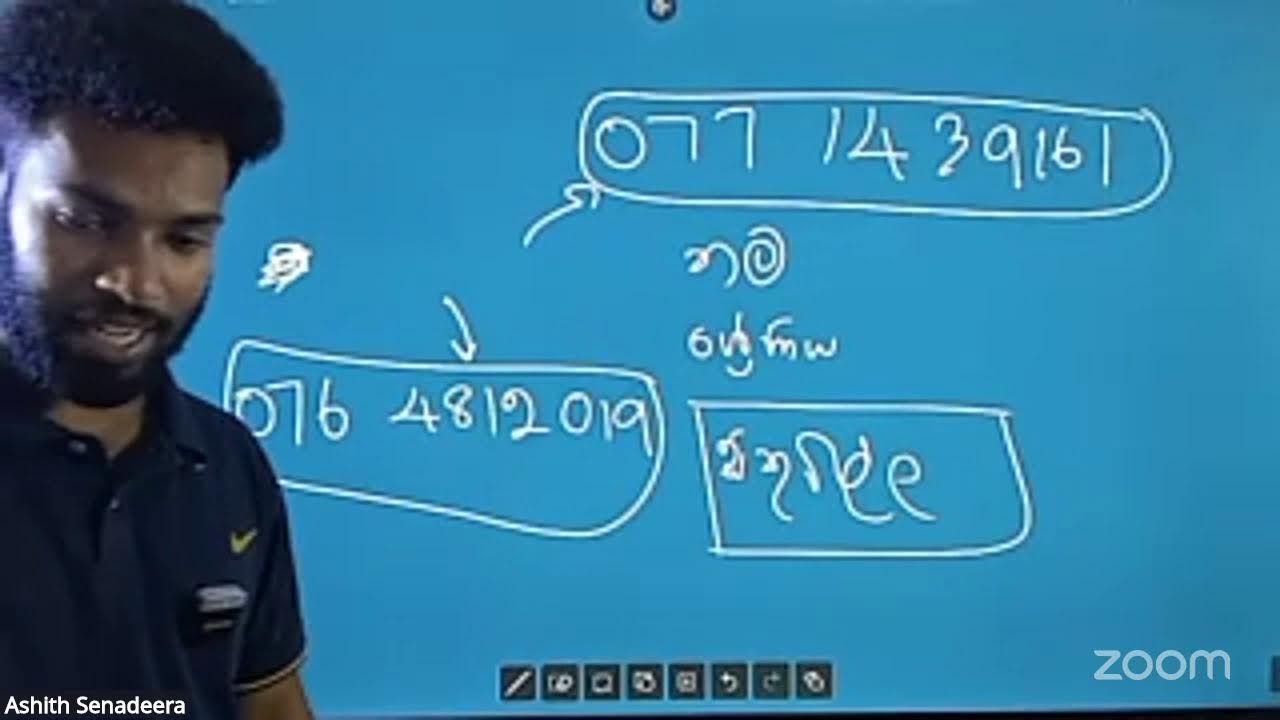 077 1439161
නම
ශ්‍රේණිය
076 4812019
zoom
Ashith Senadeera